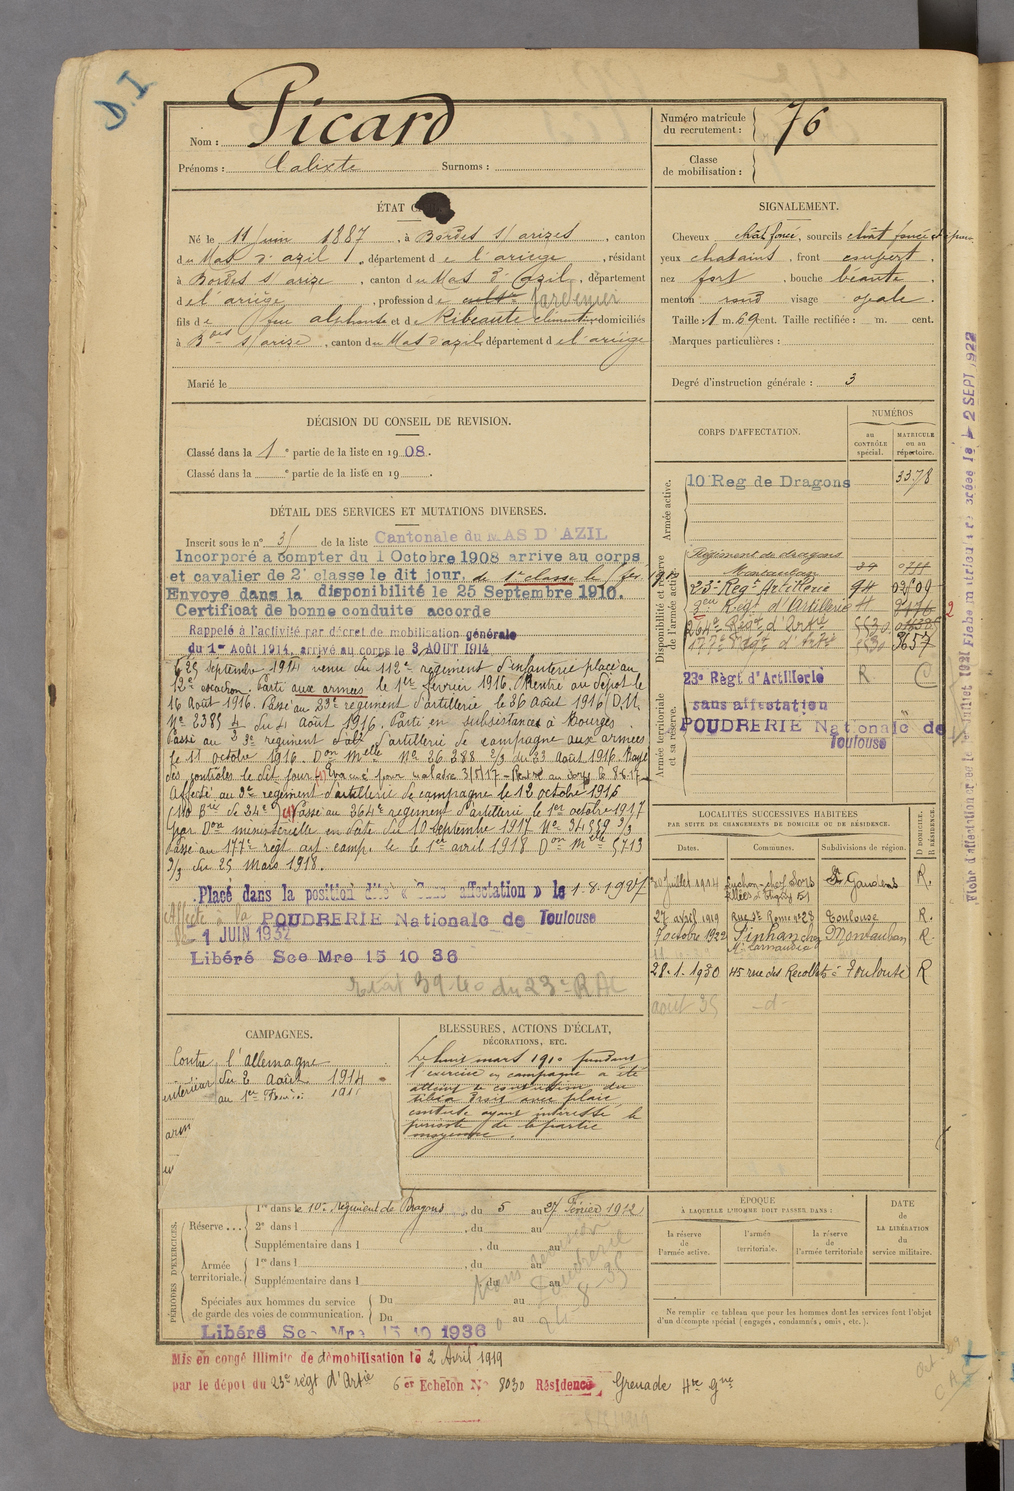 D.I
Nom : Picard
Prénoms : Calixte Surnoms :
Numéro matricule du recrutement : 76
Classe de mobilisation :
ÉTAT
Né le 11 juin 1887, à Bordes s/ arizes, canton
du Mas d'azil, département de l'ariège, résidant
à Bordes s/ arize, canton du Mas d'azil, département
de l'ariège, profession de cultr jardinier
fils de feu alphonse et de Ribeaute clémentine, domiciliés
à Bdes s/ arize, canton du Mas d'azil, département de l'ariège
Marié le
SIGNALEMENT.
Cheveux chât foncé, sourcils chât foncé
yeux chatains, front couvert,
nez fort, bouche béante,
menton rond visage ovale.
Taille : 1 m. 69 cent. Taille rectifiée : m. cent.
Marques particulières :
Degré d'instruction générale : 3
DÉCISION DU CONSEIL DE REVISION.
Classé dans la 1e partie de la liste en 1908.
Classé dans la e partie de la liste en 19
DÉTAIL DES SERVICES ET MUTATIONS DIVERSES.
Inscrit sous le n° 31 de la liste Cantonale du MAS D'AZIL
Incorporé à compter du 1 Octobre 1908 arrive au corps
et cavalier de 2e classe le dit jour. de 1e classe le 1er
Envoye dans la disponibilité le 25 Septembre 1910.
Certificat de bonne conduite accorde
Rappelé à l'activité par décret de mobilisation générale
du 1er Août 1914, arrivé au corps le 3 AOUT 1914
25 septembre 1914 venu du 112e régiment d'infanterie placé au
12e escadron. Parti aux armées le 1er février 1916. Rentré au dépot le
16 Août 1916. Passé au 23e régiment d'artillerie le 26 août 1916 D.M.
N° 2385 du 4 août 1916. Parti en subsistance à Bourges
Passé au 3e régiment d'artillerie de campagne aux armées
le 11 octobre 1916. Don Melle N° 26.288 2/3 du 23 août 1916. Rayé
des controles le dit jour (1) Evacué pour maladie 3/5/17 - Rentré au corps le 8-6-17
Affecté au 2e régiment d'artillerie de campagne le 12 octobre 1916
(110 Bie de 24e) (1) Passé au 264e régiment d'artillerie le 1er octobre 1917
par Don ministérielle en date du 10 septembre 1917 N° 34559 3/3
Passé au 177e régt art. camp. le le 1er avril 1918 Don Melle 5713
3/3 du 25 Mars 1918.
Placé dans la position dite « Sans affectation » le 1.8.1927
Affecté à la POUDRERIE Nationale de Toulouse
le 1 JUIN 1932
Libéré Sce Mre 15 10 36
Etat 39-40 du 23e RAC
CORPS D'AFFECTATION.
NUMÉROS
au CONTRÔLE spécial.
MATRICULE ou au répertoire.
Armée active.
10 Reg de Dragons 3378
Disponibilité et réserve de l'armée active
Régiment de dragons
Montauban
23e Regt Artillerie 94 02609
2e Regt d'Artillerie 7476 2
264e Régt d'Artie
177e Régt d'Artie 3657
Armée territoriale et sa réserve.
23e Règt d'Artillerie R C
sans affectation
POUDRERIE Nationale de
Toulouse
LOCALITÉS SUCCESSIVES HABITÉES
PAR SUITE DE CHANGEMENTS DE DOMICILE OU DE RÉSIDENCE.
Dates. Communes. Subdivisions de région. D DOMICILE. R RÉSIDENCE.
30 juillet 1914 Luchon St Gaudens R.
Allées d'Etigny 51
27 avril 1919 Rue St Rome n° 23 Toulouse R.
7 octobre 1922 Montauban R.
28-1-1930 45 rue des Recollets à Toulouse R
août 35 -d-
CAMPAGNES.
Contre l'allemagne
intérieur du 2 août 1914
au 1er
BLESSURES, ACTIONS D'ÉCLAT,
DÉCORATIONS, ETC.
Le huit mars 1910 pendant
l'exercice en campagne a été
atteint de contusion du
tibia droit avec plaie
contuse ayant intéressé le
périoste de la partie
moyenne.
PÉRIODES D'EXERCICES.
Réserve... 1re dans le 10e régiment de Dragons, du 5 au 27 Février 1912
2e dans l , du au
Supplémentaire dans l , du au
Armée territoriale. 1re dans l , du au
Supplémentaire dans l , du au
Spéciales aux hommes du service de garde des voies de communication. Du au
Du au
Libéré Sce Mre 15 10 1936
ÉPOQUE
À LAQUELLE L'HOMME DOIT PASSER DANS :
la réserve de l'armée active.
l'armée territoriale.
la réserve de l'armée territoriale
DATE de LA LIBÉRATION du service militaire.
Ne remplir ce tableau que pour les hommes dont les services font l'objet
d'un décompte spécial (engagés, condamnés, omis, etc.).
Mis en congé illimité de démobilisation le 2 Avril 1919
par le dépot du 23e régt d'Artie 6 er Echelon N° 8030 Résidence Grenade Hte Gne
Fiche d'affectation créée le Juillet 1921 Fiche matricule créée le 2 SEPT. 1922